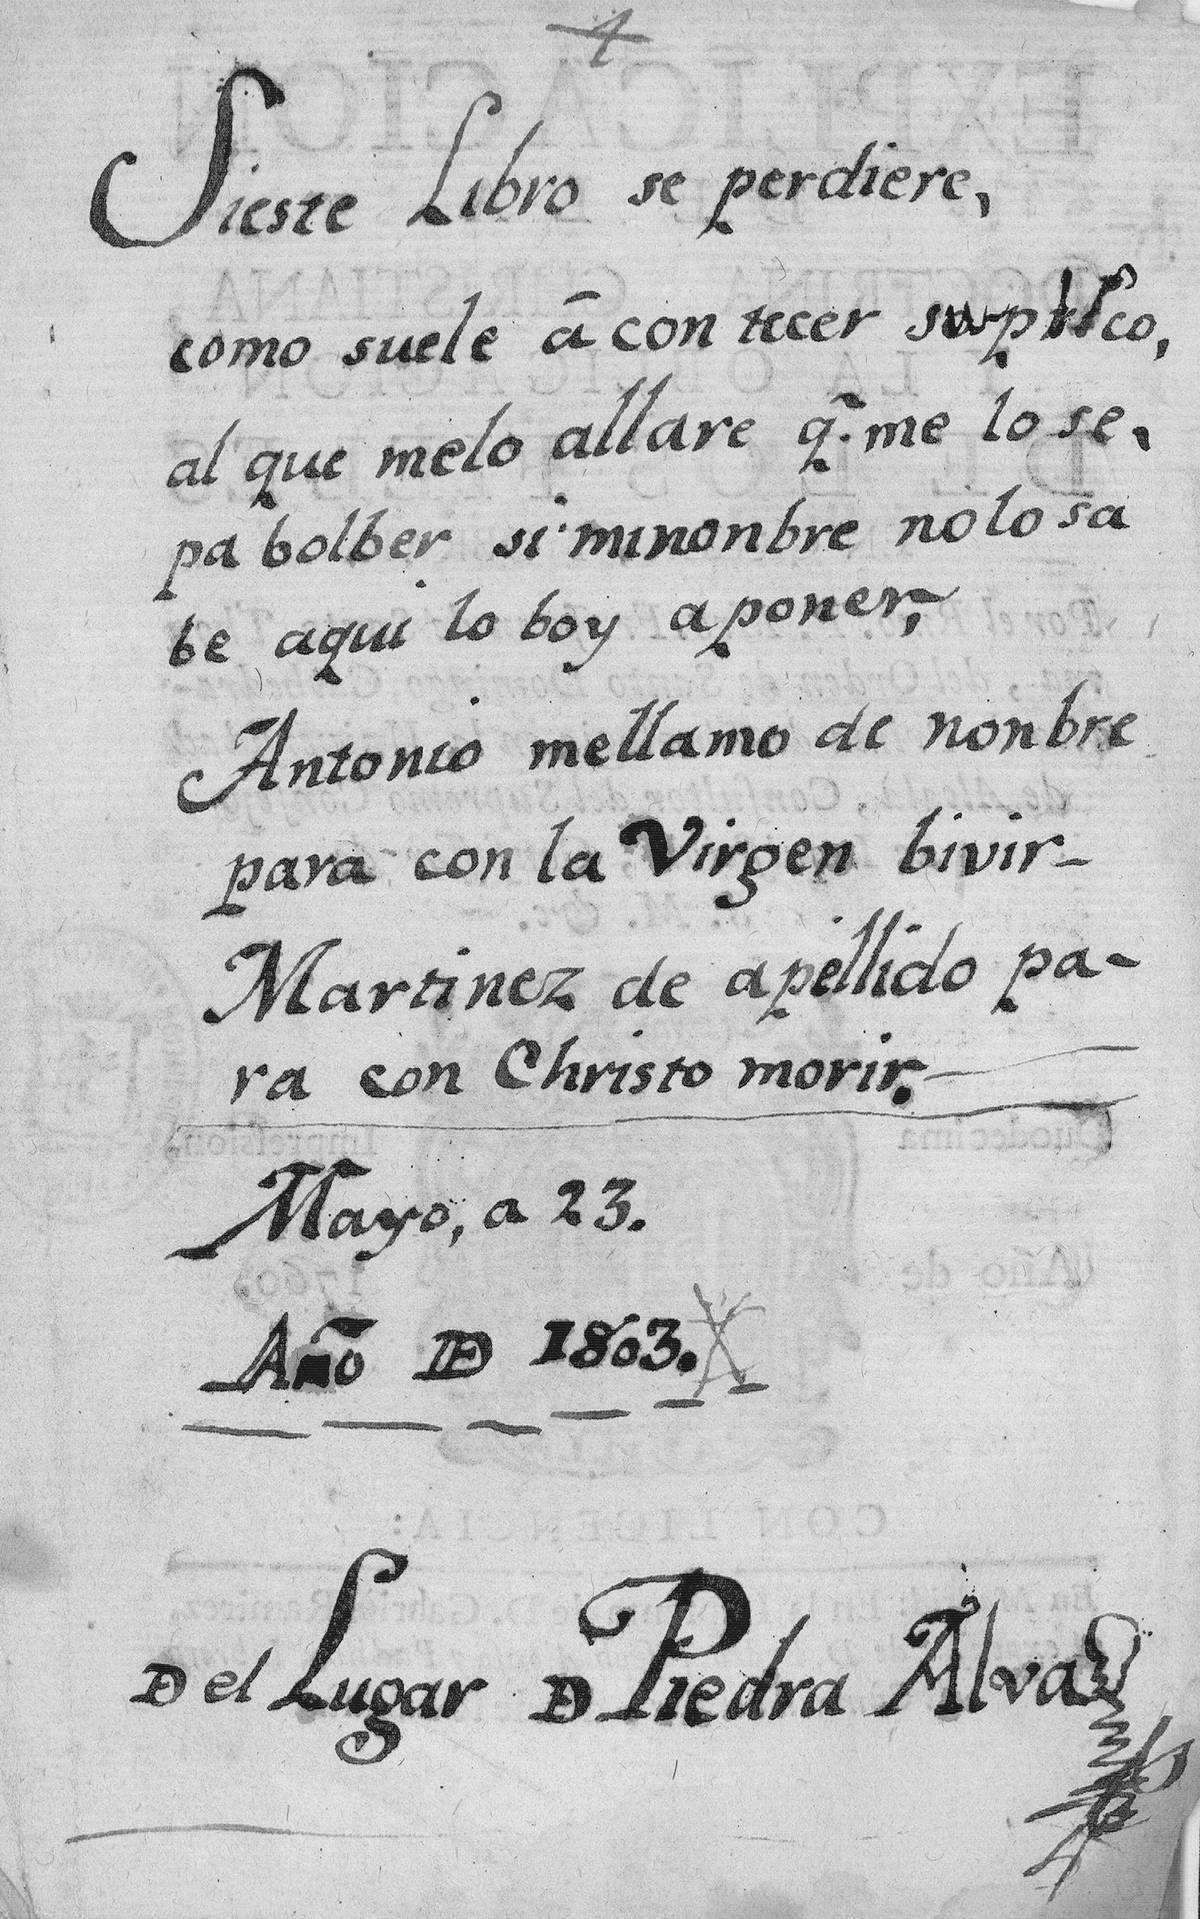 Sieste Libro se perdiere,
como suele â con tecer suplico,
al que melo allare q̃. me lo se,
pa bolber si minonbre nolo sa
be aqui lo boy a poner,
Antonio mellamo de nonbre
para con la Virgen bivir-
Martinez de apellido pa-
ra con Christo morir.
Mayo, a 23.
Año DE 1803.
DE el Lugar DE Piedra Alva